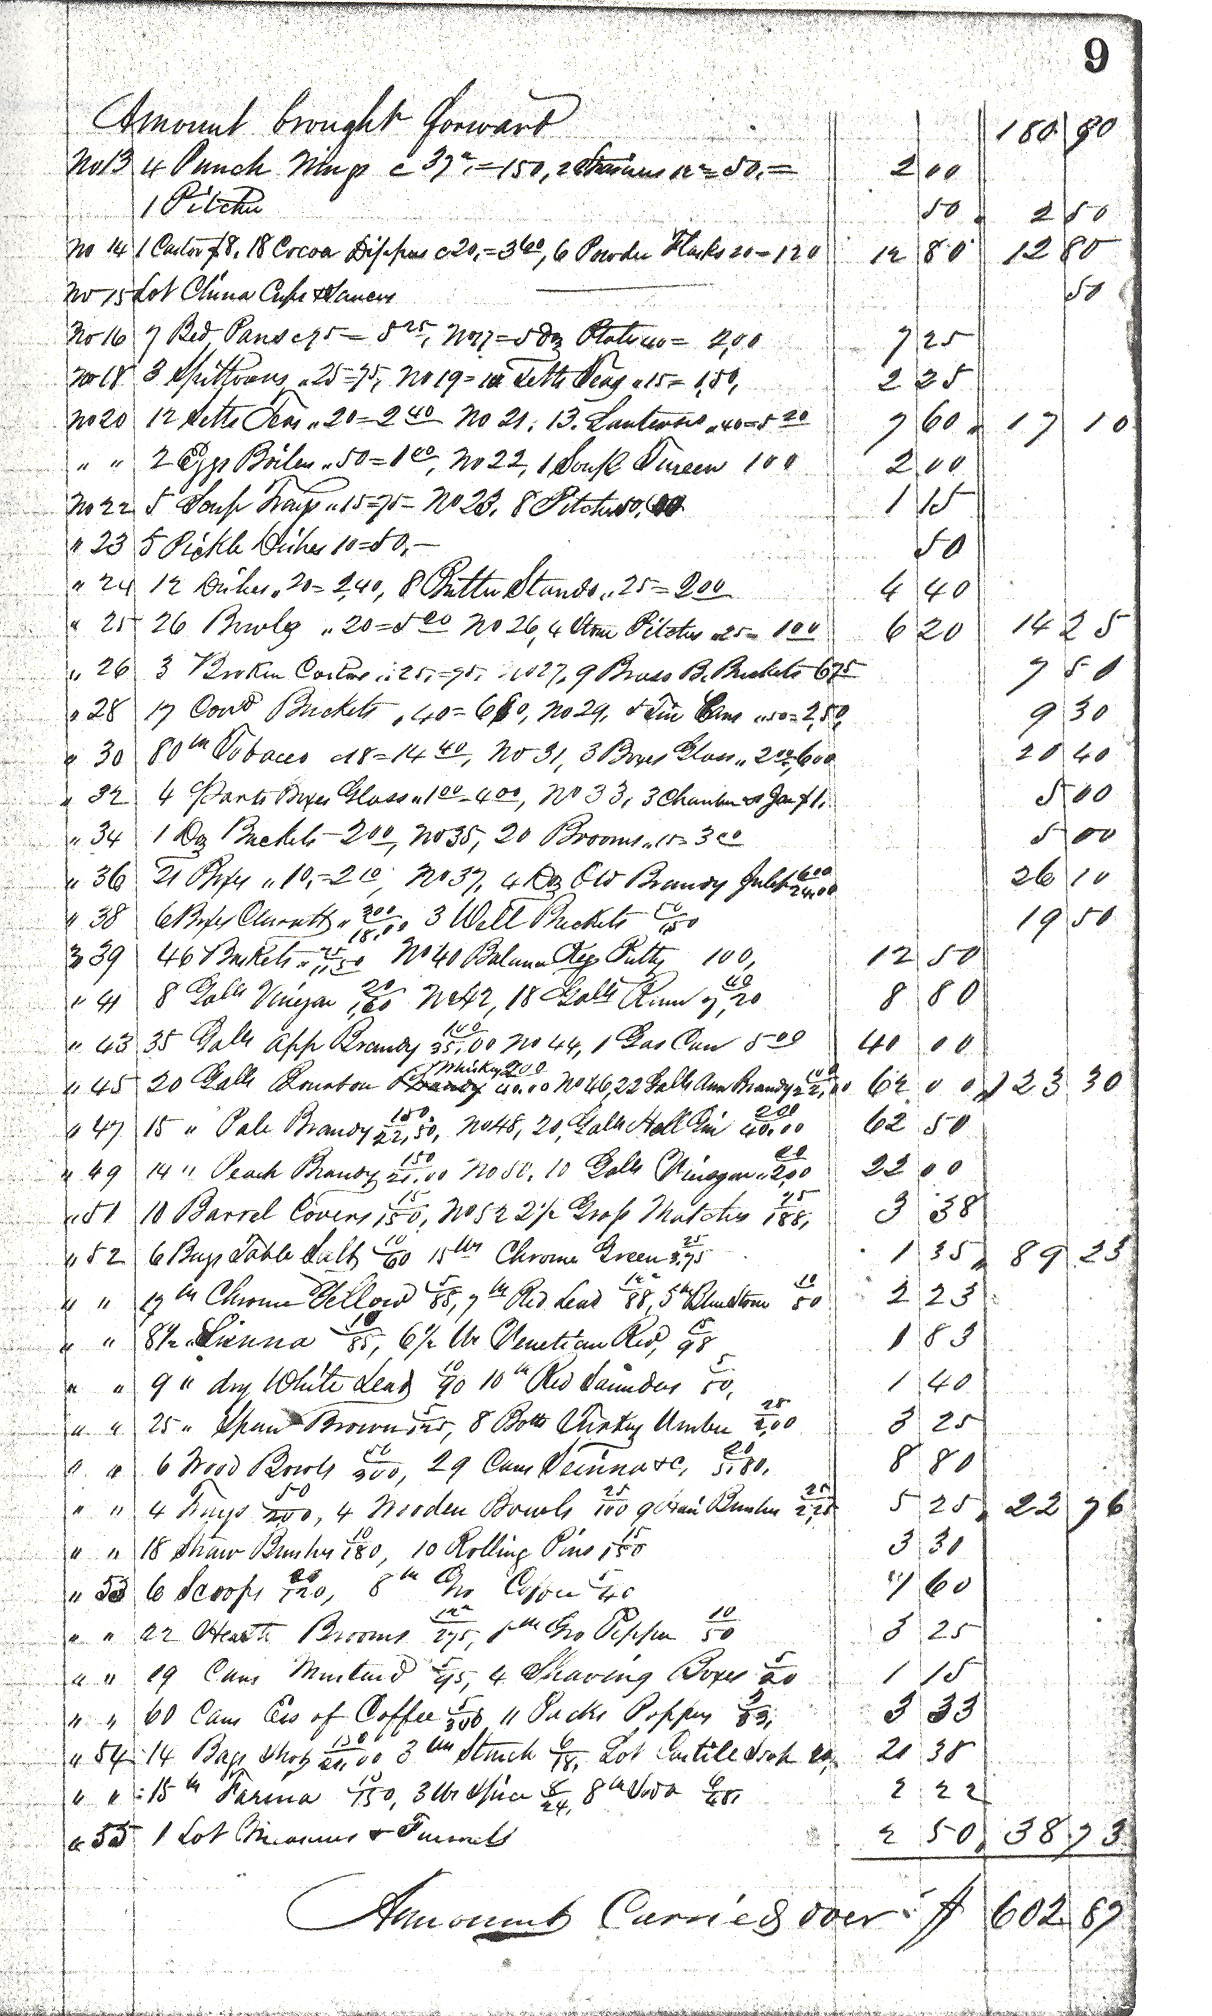 9
Amount brought forward 180 90
No 13 4 Punch Mugs c 37½ = 150, 2 Strainers = 50. = 2 00
1 Pitcher 50 2 50
No 14 1 Castor $8, 18 Cocoa Dippers c 20. = 3 60, 6 Powder Flasks 20 = 120 12 80 12 80
No 15 Lot China Cups & Saucers 50
No 16 7 Bed Pans c 75 = 5 25, No 17 = 5 Doz Plates 40 = 2,00 7 25
No 18 3 Spittoons " 25 = 75, No 19 = 10 Setts Teas " 15 = 1,50, 2 25
No 20 12 Setts Teas " 20 = 2 40 No 21. 13. Lanterns " 40 = 5 20 7 60 17 10
" " 2 Eggs Boilers " 50 = 1 00, No 22, 1 Soup Tureen 100 2 00
No 22 5 Soup Trays " 15 = 75 = No 23, 8 Pitchers 1 15
" 23 5 Pickle Dishes 10 = 50. — 50
" 24 12 Dishes " 20 = 2,40, 8 Butter Stands " 25 = 2 00 4 40
" 25 26 Bowls " 20 = 5 20 No 26, 4 Stone Pitchers " 25 = 1 00 6 20 14 25
" 26 3 Broken Castors " 25. = 75. No 27, 9 Brass B. Buckets 6 75 7 50
" 28 17 Cov'd Buckets " 40 = 6 80, No 29, 5 Tin Cans " 50 = 2,50, 9 30
" 30 80 lb Tobacco c 18 = 14 40, No 31, 3 Boxes Glass " 2 00, 6 00 20 40
" 32 4 Parts Boxes Glass " 1 00 = 4 00, No 33, 3 Chambers & Jar $1. 5 00
" 34 1 Doz Buckets — 2 00, No 35, 20 Brooms " 15 = 3 00 5 00
" 36 21 Boxes " 10. = 2 10, No 37, 4 Doz Old Brandy 6 00 24,00 26 10
" 38 6 Boxes Clarett " 300 18,00 3 Well Buckets 50 150 19 50
" 39 46 Baskets " 25 11,50 No 40 Balance Keg Putty 100, 12 50
" 41 8 Galls Vinegar 20 1,60 No 42, 18 Galls Rum 40 7,20 8 80
" 43 35 Galls App Brandy 100 35,00 No 44, 1 Gas Can 5 00 40 00
" 45 20 Galls Bourbon Whisky 200 40,00 No 46, 22 Galls Brandy 100 22,00 62 00 123 30
" 47 15 " Pale Brandy 150 22,50, No 48, 20, Galls Holl Gin 200 40,00 62 50
" 49 14 " Peach Brandy 150 21,00 No 50, 10 Galls Vinegar " 20 2,00 22 00
" 51 10 Barrel Covers 15 150, No 52 2½ Gross Matches 75 188, 3 38
" 52 6 Bags Table Salt 10 60 15 lbs Chrome Green 25 3,75 1 35 89 23
" " 17 lb Chrome Yellow 5 85, 7 lb Red Lead 88, 5 lb Bluestone 10 50 2 23
" " 8½ " Sienna 10 85, 6½ lbs Venetian Red, 15 98 1 83
" " 9 " dry White Lead 10 90 10 lb Red Saunders 5 50, 1 40
" " 25 " Span Brown 5 125, 8 Botts Turkey Umber 25 2,00 3 25
" " 6 Wood Bowls 50 300, 29 Cans Sienna &c, 20 5,80, 8 80
" " 4 Trays 50 200, 4 Wooden Bowls 25 100 9 Hair Brushes 25 2,25 5 25 22 76
" " 18 Straw Brushes 10 180, 10 Rolling Pins 15 150 3 30
" 53 6 Scoops 20 120, 8 lb Gro Coffee 5 40 1 60
" " 22 Hearth Brooms 12½ 275, 5 lb Gro Pepper 10 50 3 25
" " 19 Cans Mustard 5 95, 4 Shaving Boxes 5 20 1 15
" " 60 Cans Ess of Coffee 5 300 11 Packs Pepper 3 33, 3 33
" 54 14 Bags Shot 150 21,00 3 lbs Starch 6 18, Lot Castile Soap 20, 21 38
" " 15 lb Farina 10 150, 3 lbs Spice 8 24, 8 lb Soda 6 48, 2 22
" 55 1 Lot Measures & Funnels 2 50 38 73
Amount Carried over $ 602 87